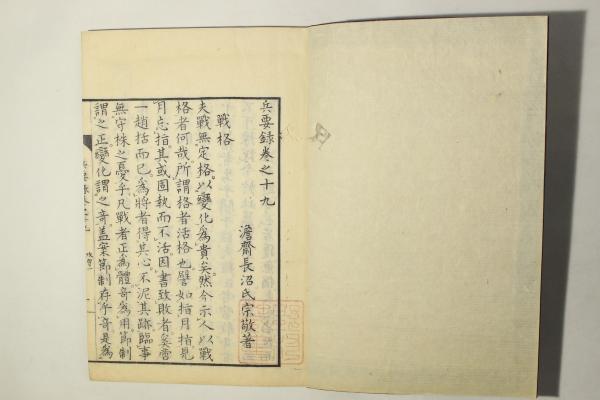 兵要録巻之十九
澹齋長沼氏宗敬著
戰格
夫戰無定格以變化為貴矣然今示人以戰
格者何哉所謂格者活格也譬如指月指見
月忘指其或固執而不活因書致敗者奚啻
一趙括而已為將者得其心不泥其跡臨事
無守株之憂乎凡戰者正為體奇為用節制
謂之正變化謂之奇蓋案節制存乎奇是為